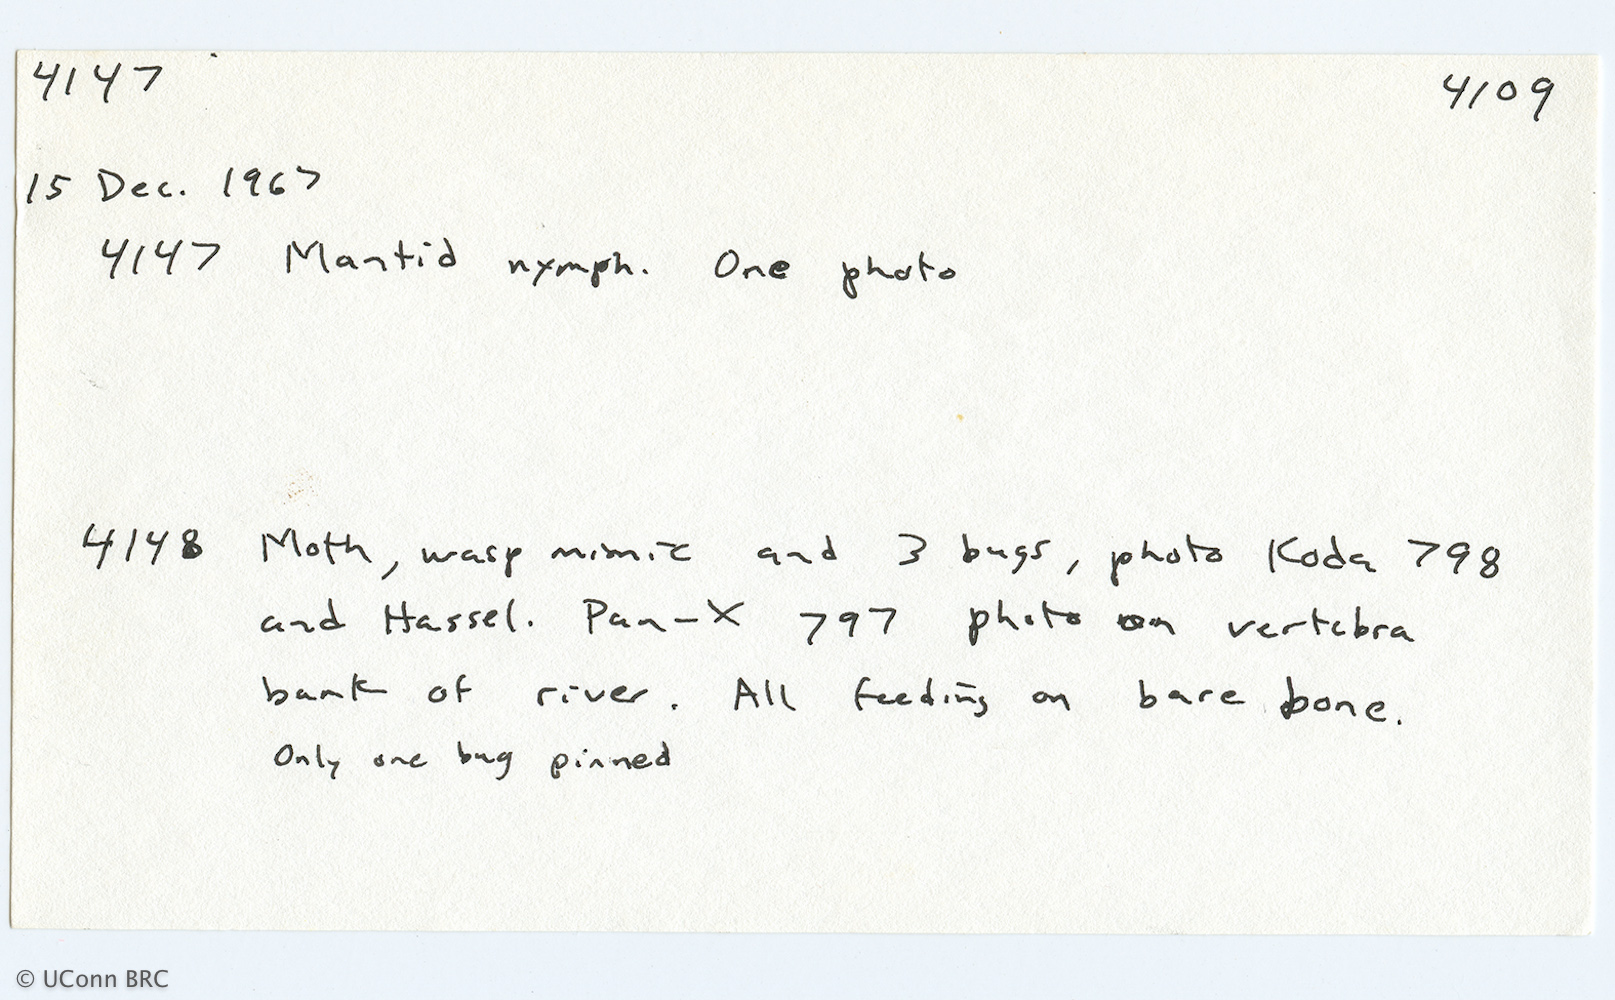 4147 4109
15 Dec. 1967
4147 Mantid nymph. One photo
4148 Moth, wasp mimic and 3 bugs, photo Koda 798
and Hassel. Pan-X 797 photo on vertebra
bank of river. All feeding on bare bone.
Only one bug pinned
© UConn BRC